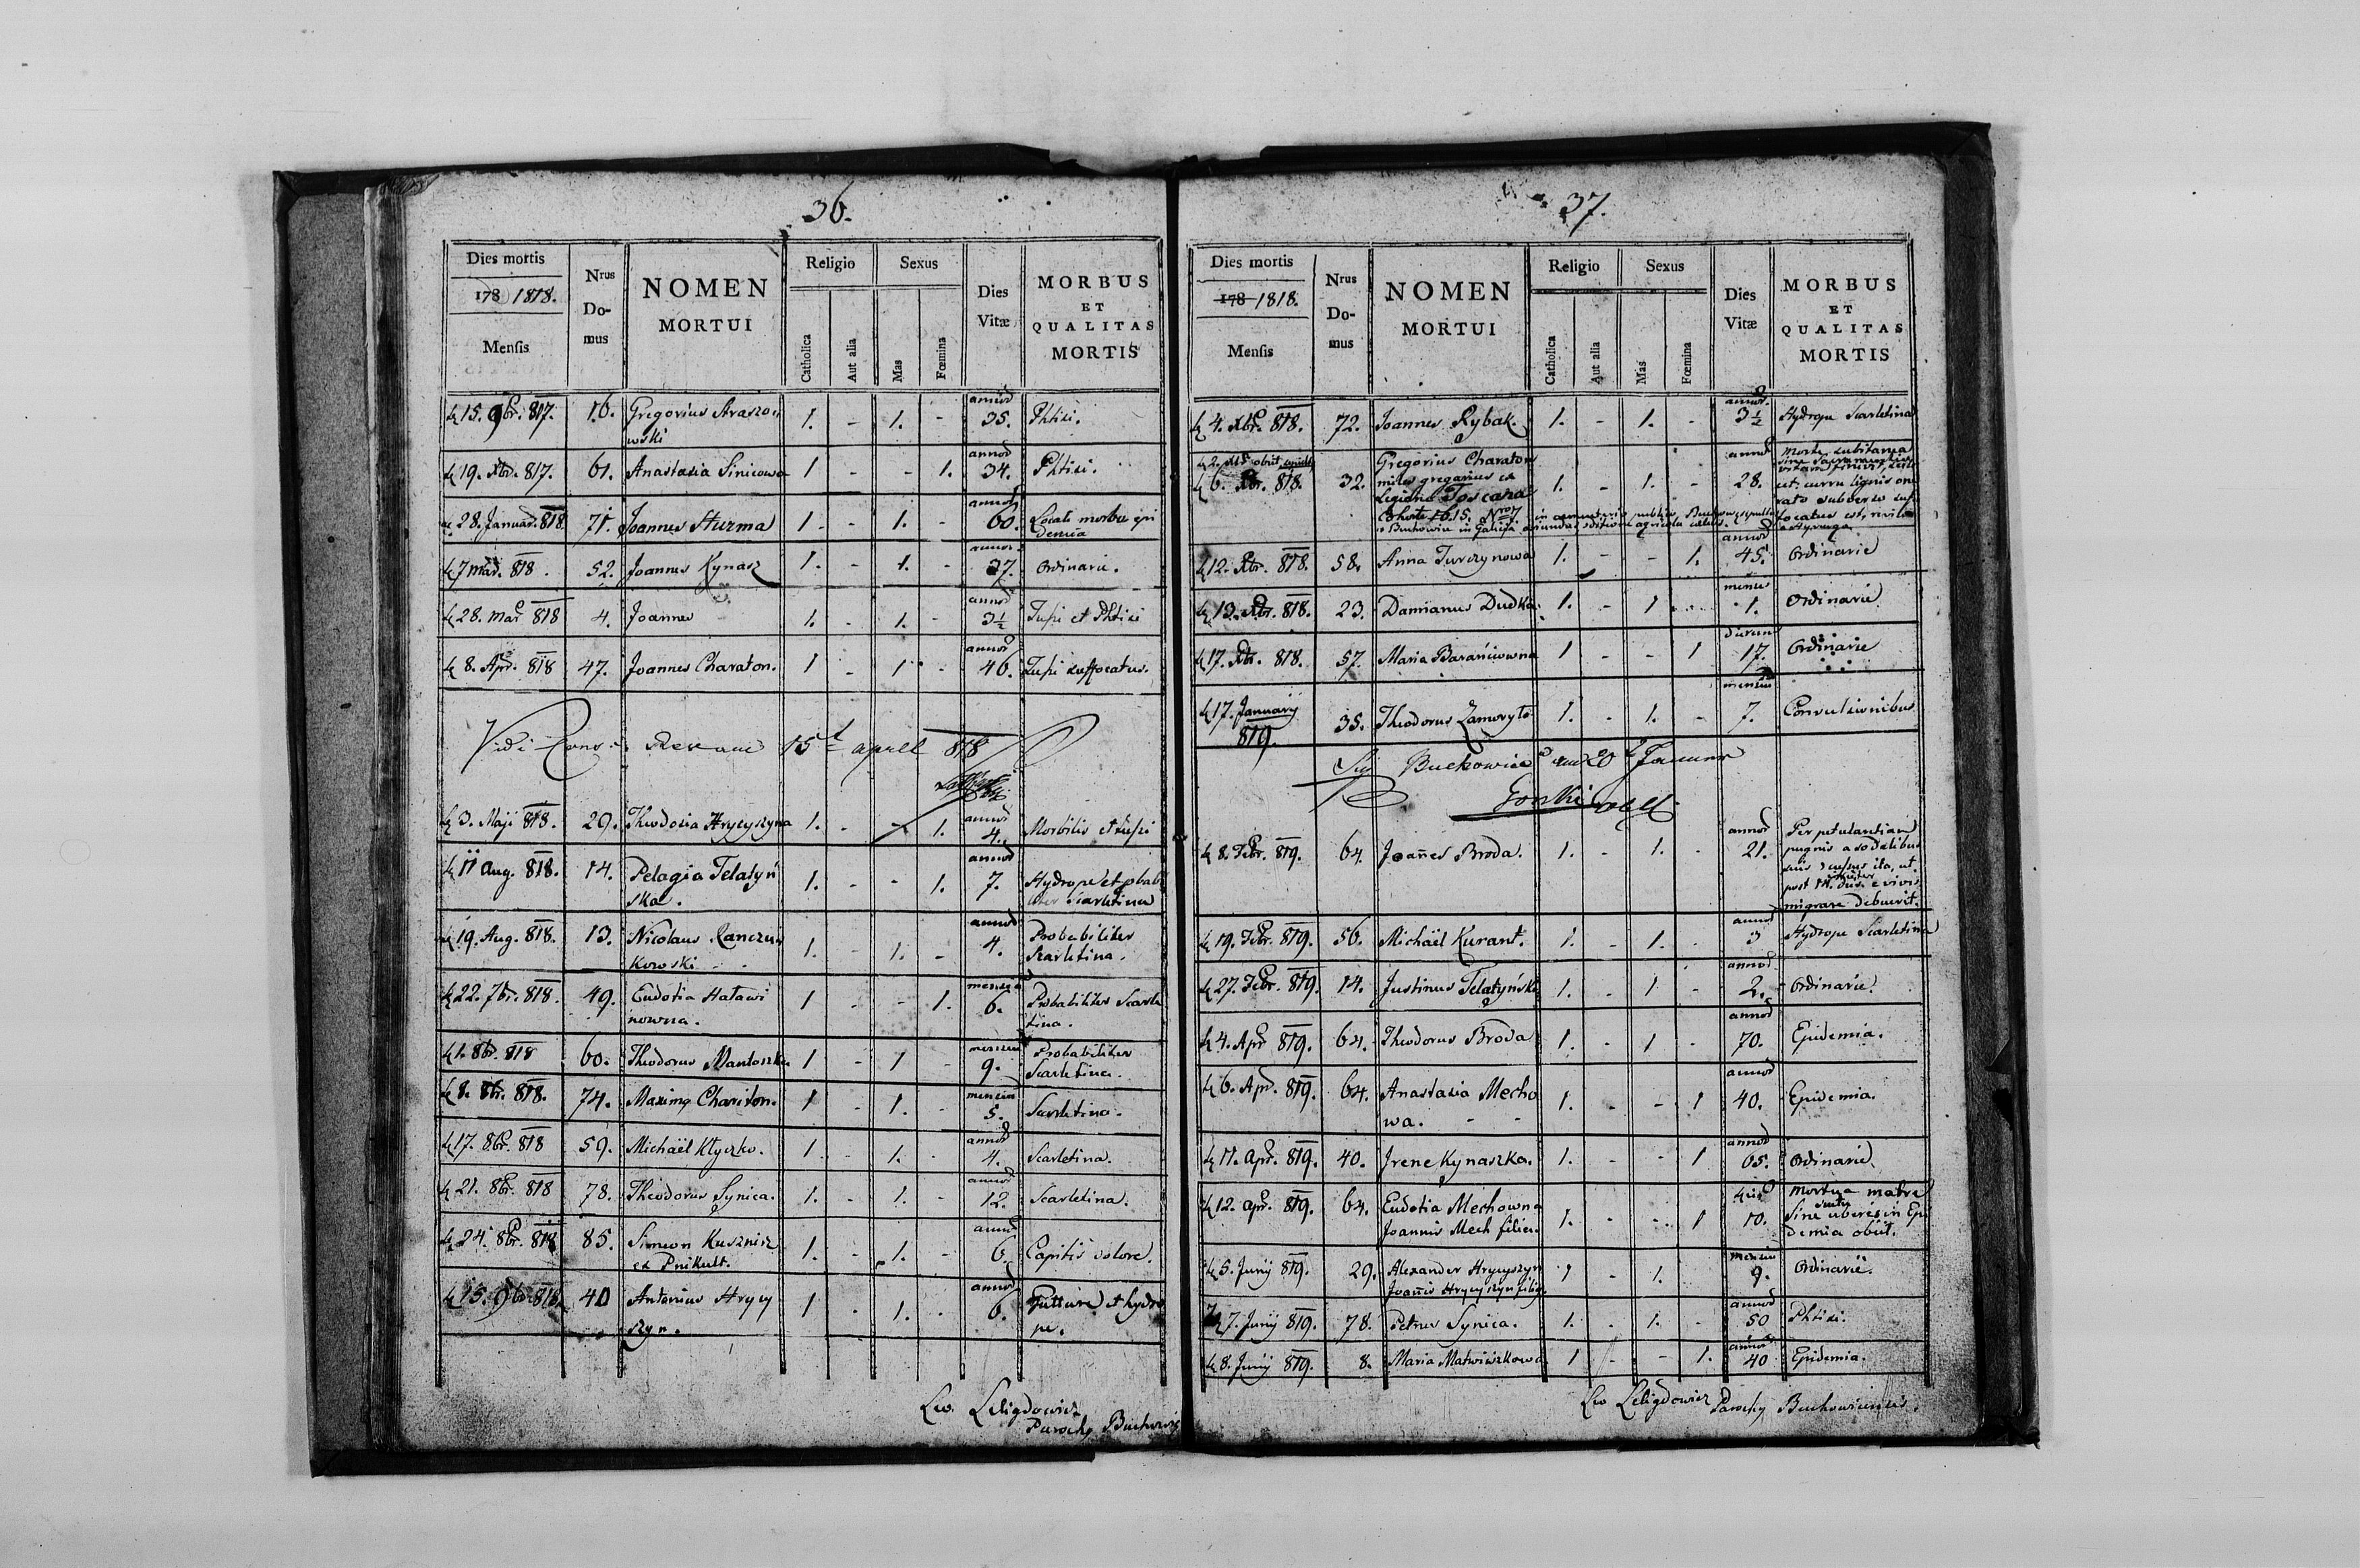 36.
Dies mortis
178 1818.
Mensis
Nrus
Do-
mus
NOMEN
MORTUI
Religio
Catholica
Aut alia
Sexus
Mas
Fœmina
Dies
Vitæ
MORBUS
ET
QUALITAS
MORTIS
15. 9br. 817. 16. Gregorius Straszo 1. - 1. - annor 35. Phtisi.
wski
19. Xbr. 817. 61. Anastasia Sinicowa 1 - - 1. annor 34. Phtisi.
28. Januar. 818. 71. Joannes Sturma 1 - 1. - annor 60. Locali morbo epi
demia
7 Mar. 818. 52. Joannes Kynasz 1. - 1. - annor 37. Ordinarie.
28. Mar 818 4. Joannes 1. - 1. - annor 3½ Tussi et Phtisi
8. Apr. 818 47. Joannes Charaton. 1 - 1 - annor 46. Tussi suffocatus.
Vidi 15t april 818
3. Maji 818. 29. Theodosia Hrycyszyna 1. - - 1. annor 4. Morbilis et tussi
11 Aug. 818. 14. Pelagia Telatyń 1. - - 1. annor 7. Hydrope et probabi
ska. liter Scarletina
19. Aug. 818. 13. Nicolaus 1. - 1. - annor 4. Probabiliter
kowski Scarletina.
22. 7br. 818. 49. Eudotia Hatawi 1 - - 1. mensium 6. Probabiliter Scarle
nowna. tina.
1. 8br. 818 60. Theodorus 1 - 1 - mensium 9. Probabiliter
Scarletina.
8. 8br. 818. 74. Maxima Chariton. 1 - 1. - mensium 5. Scarletina.
17. 8br. 818 59. Michaël Klyczko. 1 - 1. - annor 4. Scarletina.
21. 8br. 818 78. Theodorus Synica. 1. - 1. - annor 12. Scarletina.
24. 8br. 818 85. Simeon Kusznisz 1. - 1. - annor 6. Capitis dolore.
ex Pnikult.
15. 9br. 818. 40 Antonius Hrycy 1 - 1. - annor 6. Gutture et hydro
szyn. pe.
Leo Leligdowicz
Parochy
37.
Dies mortis
178 1818.
Mensis
Nrus
Do-
mus
NOMEN
MORTUI
Religio
Catholica
Aut alia
Sexus
Mas
Fœmina
Dies
Vitæ
MORBUS
ET
QUALITAS
MORTIS
4. Xbr. 818. 72. Joannes Rybak. 1. - 1. - annor. 3½ Hydrope Scarletina
6. Xbr. 818. 32. Gregorius Charaton 1. - 1. - annor 28. Morte subitanea
miles gregarius ex sine Sacramentis
Legione Toscana vitam finivit,
Cohorte 16. 15. Nro 7 in cemeterio publico
e Buchowice in Galicia
ut curru lignis one
rato subverso suf
focatus est,
12. Xbr. 818. 58. Anna Turczynowa 1. - - 1. annor 45. Ordinarie
13. Xbr. 818. 23. Damianus Dudka. 1. - 1 - mensis 1. Ordinarie
17. Xbr. 818. 57. Maria Barańciowna 1 - - 1 dierum 17. Ordinarie
17. Januarij 35. Theodorus Zamoryto 1. - 1. - mensium 7. Convulsionibus
819.
Sig Buchowice am 20 t Januar
8. Febr. 819. 64. Joañes Broda. 1. - 1. - annor 21. Per petulantiam
pugnis a sodalibus
suis ita, ut
post e vivis
migrare debuerit.
19. Febr. 819. 56. Michaël Kurant. 1. - 1. - annor 3 Hydrope Scarletina
27. Febr. 819. 14. Justinus Telatyński 1. - 1 - annor 2. Ordinarie.
4. Apr 819. 64. Theodorus Broda 1. - 1 - annor 70. Epidemia.
6. Apr. 819. 64. Anastasia Mecho 1. - - 1 annor 40. Epidemia.
wa.
11. Apr. 819. 40. Irene Kynaszka. 1. - - 1 annor 65. Ordinarie.
12. Apr. 819. 64. Eudotia Mechowna 1. - - 1 10. Mortua matre
Joannis Mech filia. sine uberis in Epi
demia obiit.
5. Junij 819. 29. Alexander Hrycyszyn 1 - 1. mensium 9. Ordinarie.
Joañis Hrycyszyn filius
7. Junij 819. 78. Petrus Synica. 1. - 1. - annor 50 Phtisi.
8. Junij 819. 8. Maria Matwiszkowa 1 - - 1. annor 40 Epidemia.
Leo Leligdowicz Parochy Buchowicensis.